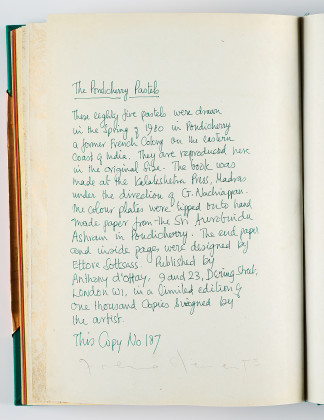 The Pondicherry Pastels
These eighty five pastels were drawn
in the Spring of 1980 in Pondicherry
a former French Colony on the eastern
Coast of India. They are reproduced here
in the original Size. The book was
made at the Kalakshetra Press, Madras
under the direction of G. Nachiappan.
The colour plates were tipped onto hand
made paper from the Sri Aurobindo
Ashram in Pondicherry. The end paper
and inside pages were designed by
Ettore Sottsass. Published by
Anthony d'Offay, 9 and 23, Dering Street,
London W1. in a limited edition of
one thousand Copies signed by
the artist
This Copy No 187